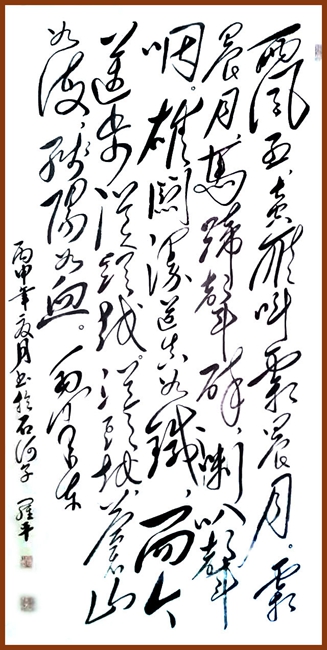 西風烈長空雁叫霜晨月。霜
晨月,馬蹄聲碎,喇叭聲
咽。雄關漫道真如鐵,而今
邁步從頭越。從頭越,蒼山
如海,殘陽如血。毛澤東
丙申年夏月書於石河子 羅平